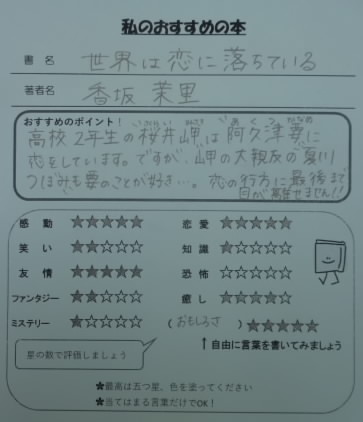 私のおすすめの本
書名 世界は恋に落ちている
著者名 香坂 茉里
おすすめのポイント!
高校2年生の桜井岬は阿久津要に
恋をしています。ですが、岬の大親友の夏川
つぼみも要のことが好き…。恋の行方に最後まで
目が離せません!!
感動 ★★★★★ 恋愛 ★★★★★
笑い ★☆☆☆☆ 知識 ☆☆☆☆☆
友情 ★★★★★ 恐怖 ☆☆☆☆☆
ファンタジー ★★☆☆☆ 癒し ★★★★☆
ミステリー ★☆☆☆☆ (おもしろさ) ★★★★★
星の数で評価しましょう
↑自由に言葉を書いてみましょう
★最高は五つ星、色を塗ってください
★当てはまる言葉だけでOK!